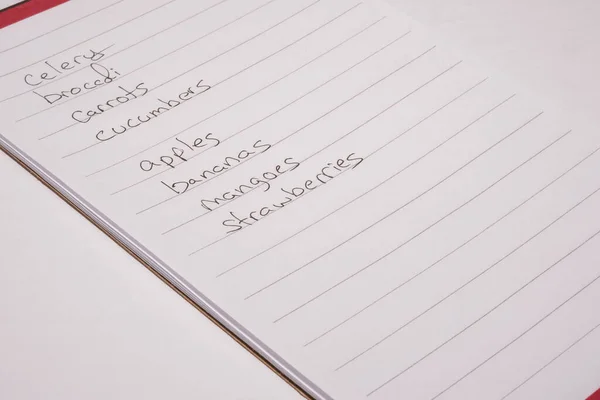 celery
broccoli
carrots
cucumbers
apples
bananas
mangoes
strawberries